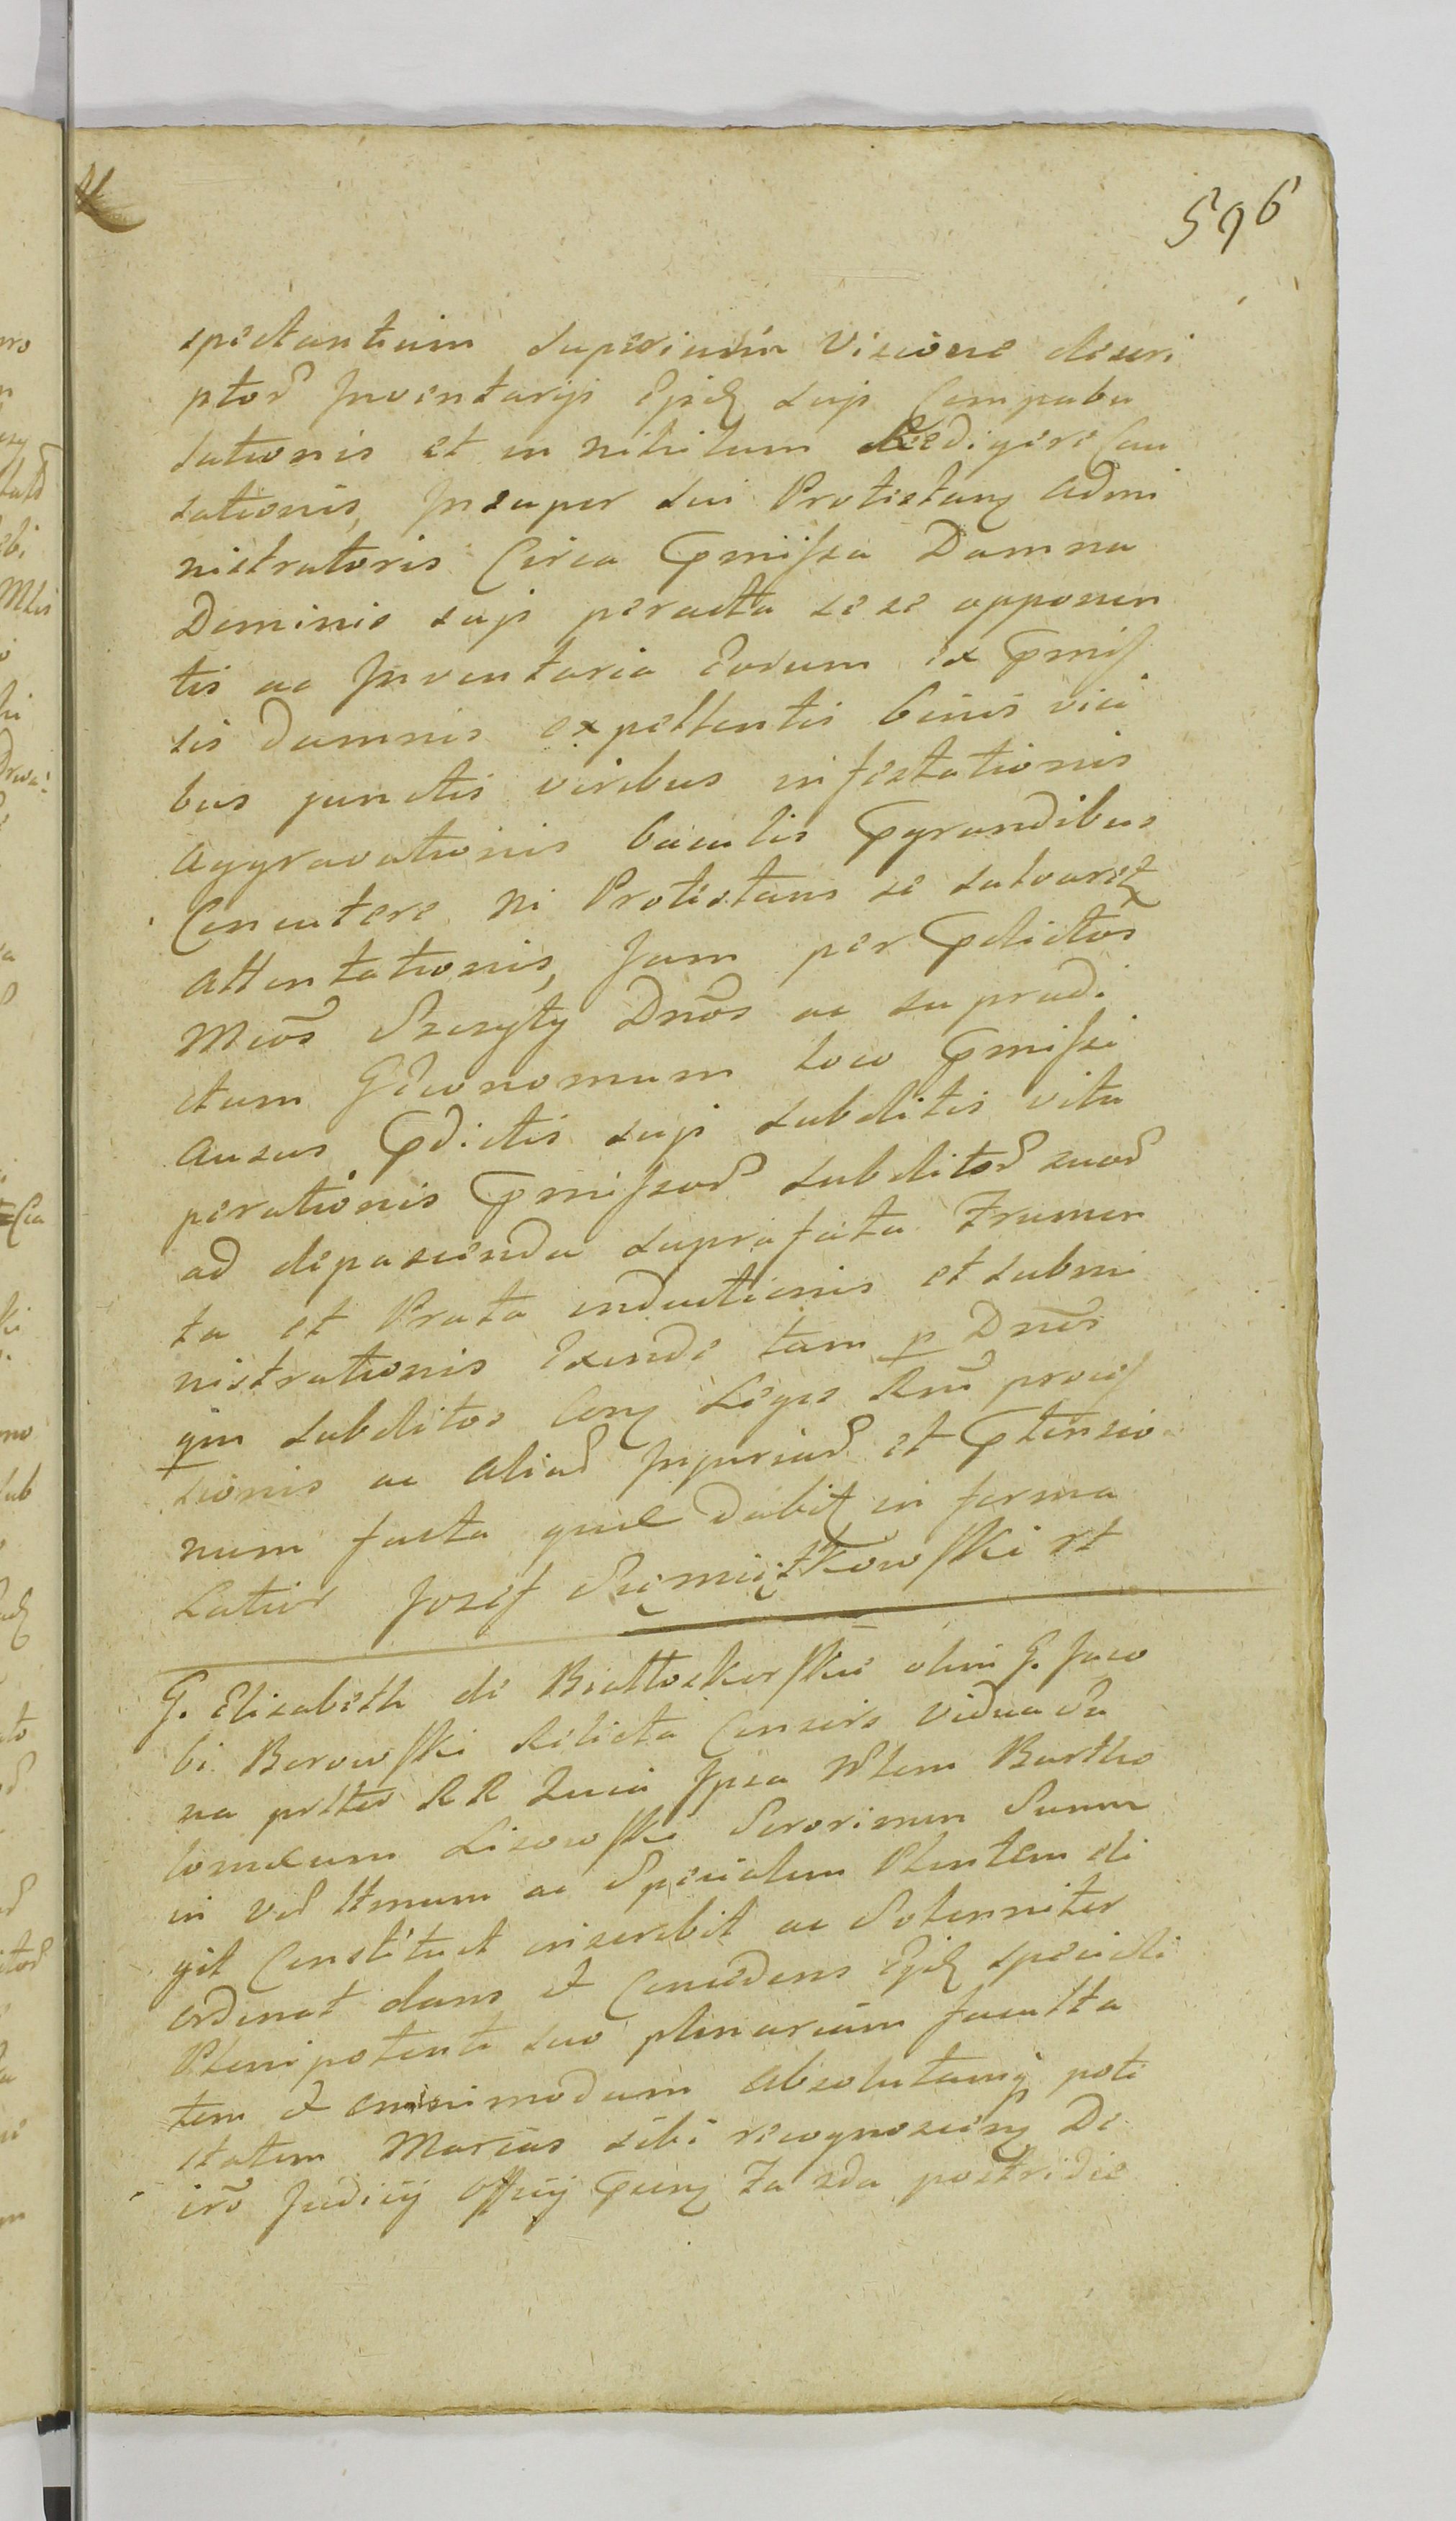 596
spectantium superiusin Visione descri
ptor Inventarys Ejsd suis Compabu
lationis et in nihilum Redigere Cau
sationis, Insuper sui Protestans admi
nistratoris Circa pmissa Damna
Dominio suis peracta sese opponen
tis ac Inventaria Eorum ex pmis
sis damnis expellentis binis vici
bus junctis viribus infestationis
aggravationis baculis pgrandibus
Concutere ni Protestans se salvaret
attentationis, Jam per pdictos
Mcos Szczyty Dnos ac supradi
ctum Oeconomum loco pmissi
ausus pdictis suis subditis vitu
perationis pmissor subditor suor
ad depascenda suprafata Frumen
ta et Prata inductionis et submi
nistrationis Exinde tam p Dnos
qm subditos Cons Leges Rni proces
sionis ac aliar Injuriar et ptensio
num facta quae dabit in forma
Latior Jozef Siemiątkowski st
G. Elizabeth de Białłoskorskie olim G. Jaco
bi Borowski Relicta Consors vidua Su
na prttes RR Lucia Ipsa Nblem Bartho
lomaeum Lisowski Sororinum Suum
in ver ltmum ac Specialem Plentem eli
git Constituit inscribit ac Solenniter
ordinat dans et Concedens Ejsd speciali
Plenipotenti suo plenariam faculta
tem et omnimodam absolutamq pote
statem Marcas sibi recognoscens De
cro Judicij Officij psens Fa 2da postridie